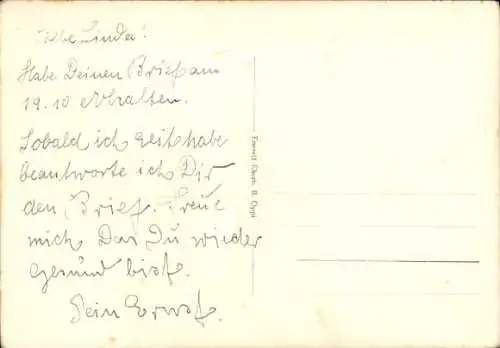 Liebe Linda!
Habe Deinen Brief am
19.10 erhalten.
Sobald ich Zeit habe
beantworte ich Dir
den Brief. Freue
mich Das Du wieder
gesund bist.
Dein Ernst.